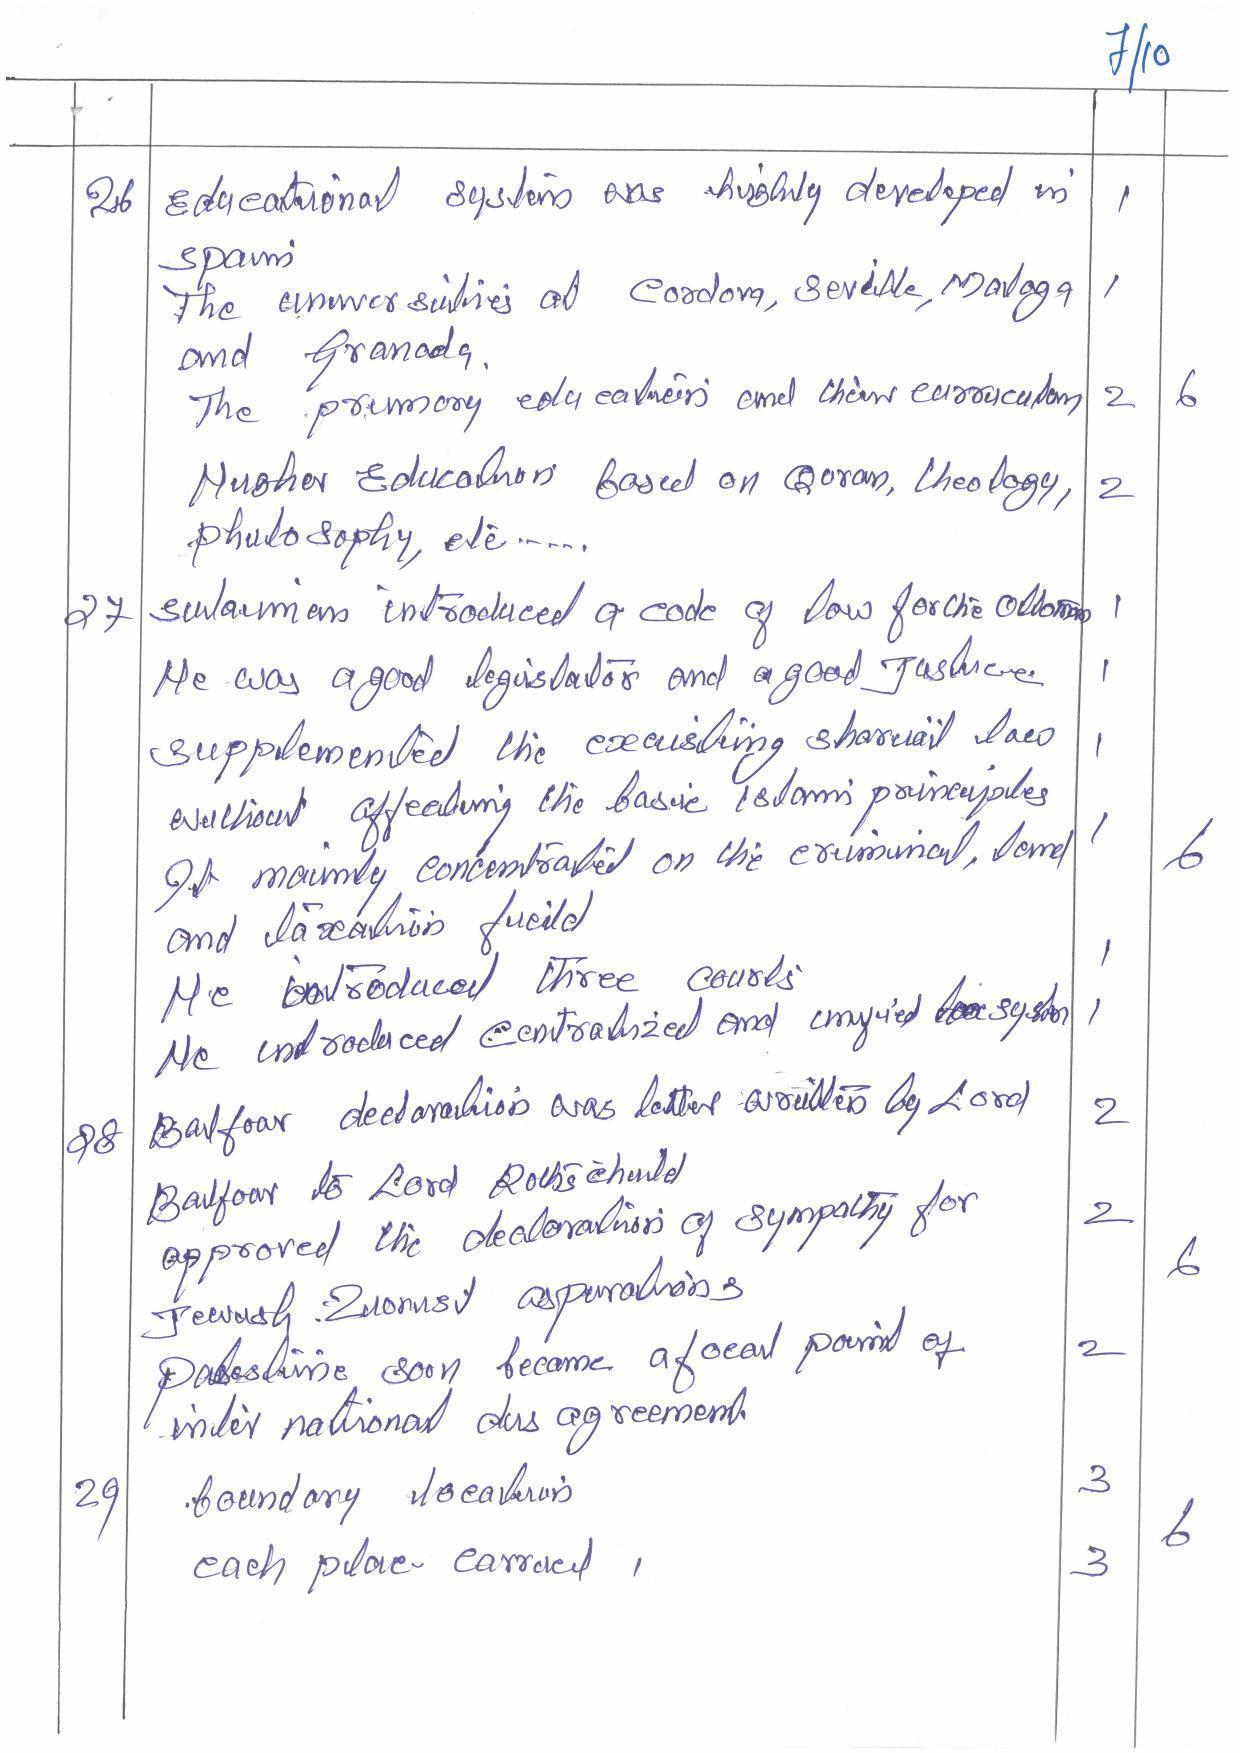 7/10
26 Educational system was highly developed in 1
spain
The universities at Cordova, Seville, Malaga 1
and Granada.
The primary education and their curriculam 2 6
Higher Education based on Qoran, theology, 2
philosophy, etc ......
27 sulaiman introduced a code of law for the Ottoman 1
He was a good legislator and a good Justice 1
supplemented the existing shariat law 1
without affecting the basic islam principles
It mainly concentrated on the criminal, land 1 6
and taxation field
He introduced three courts 1
He introduced centralized and system 1
28 Balfour declaration was letter written by Lord 2
Balfour to Lord Rothschild
approved the declaration of sympathy for 2
Jewish Zionist aspirations 6
Palestine soon became a focal point of 2
inter national dis agreement
29 boundary location 3
6
each place carried 1 3